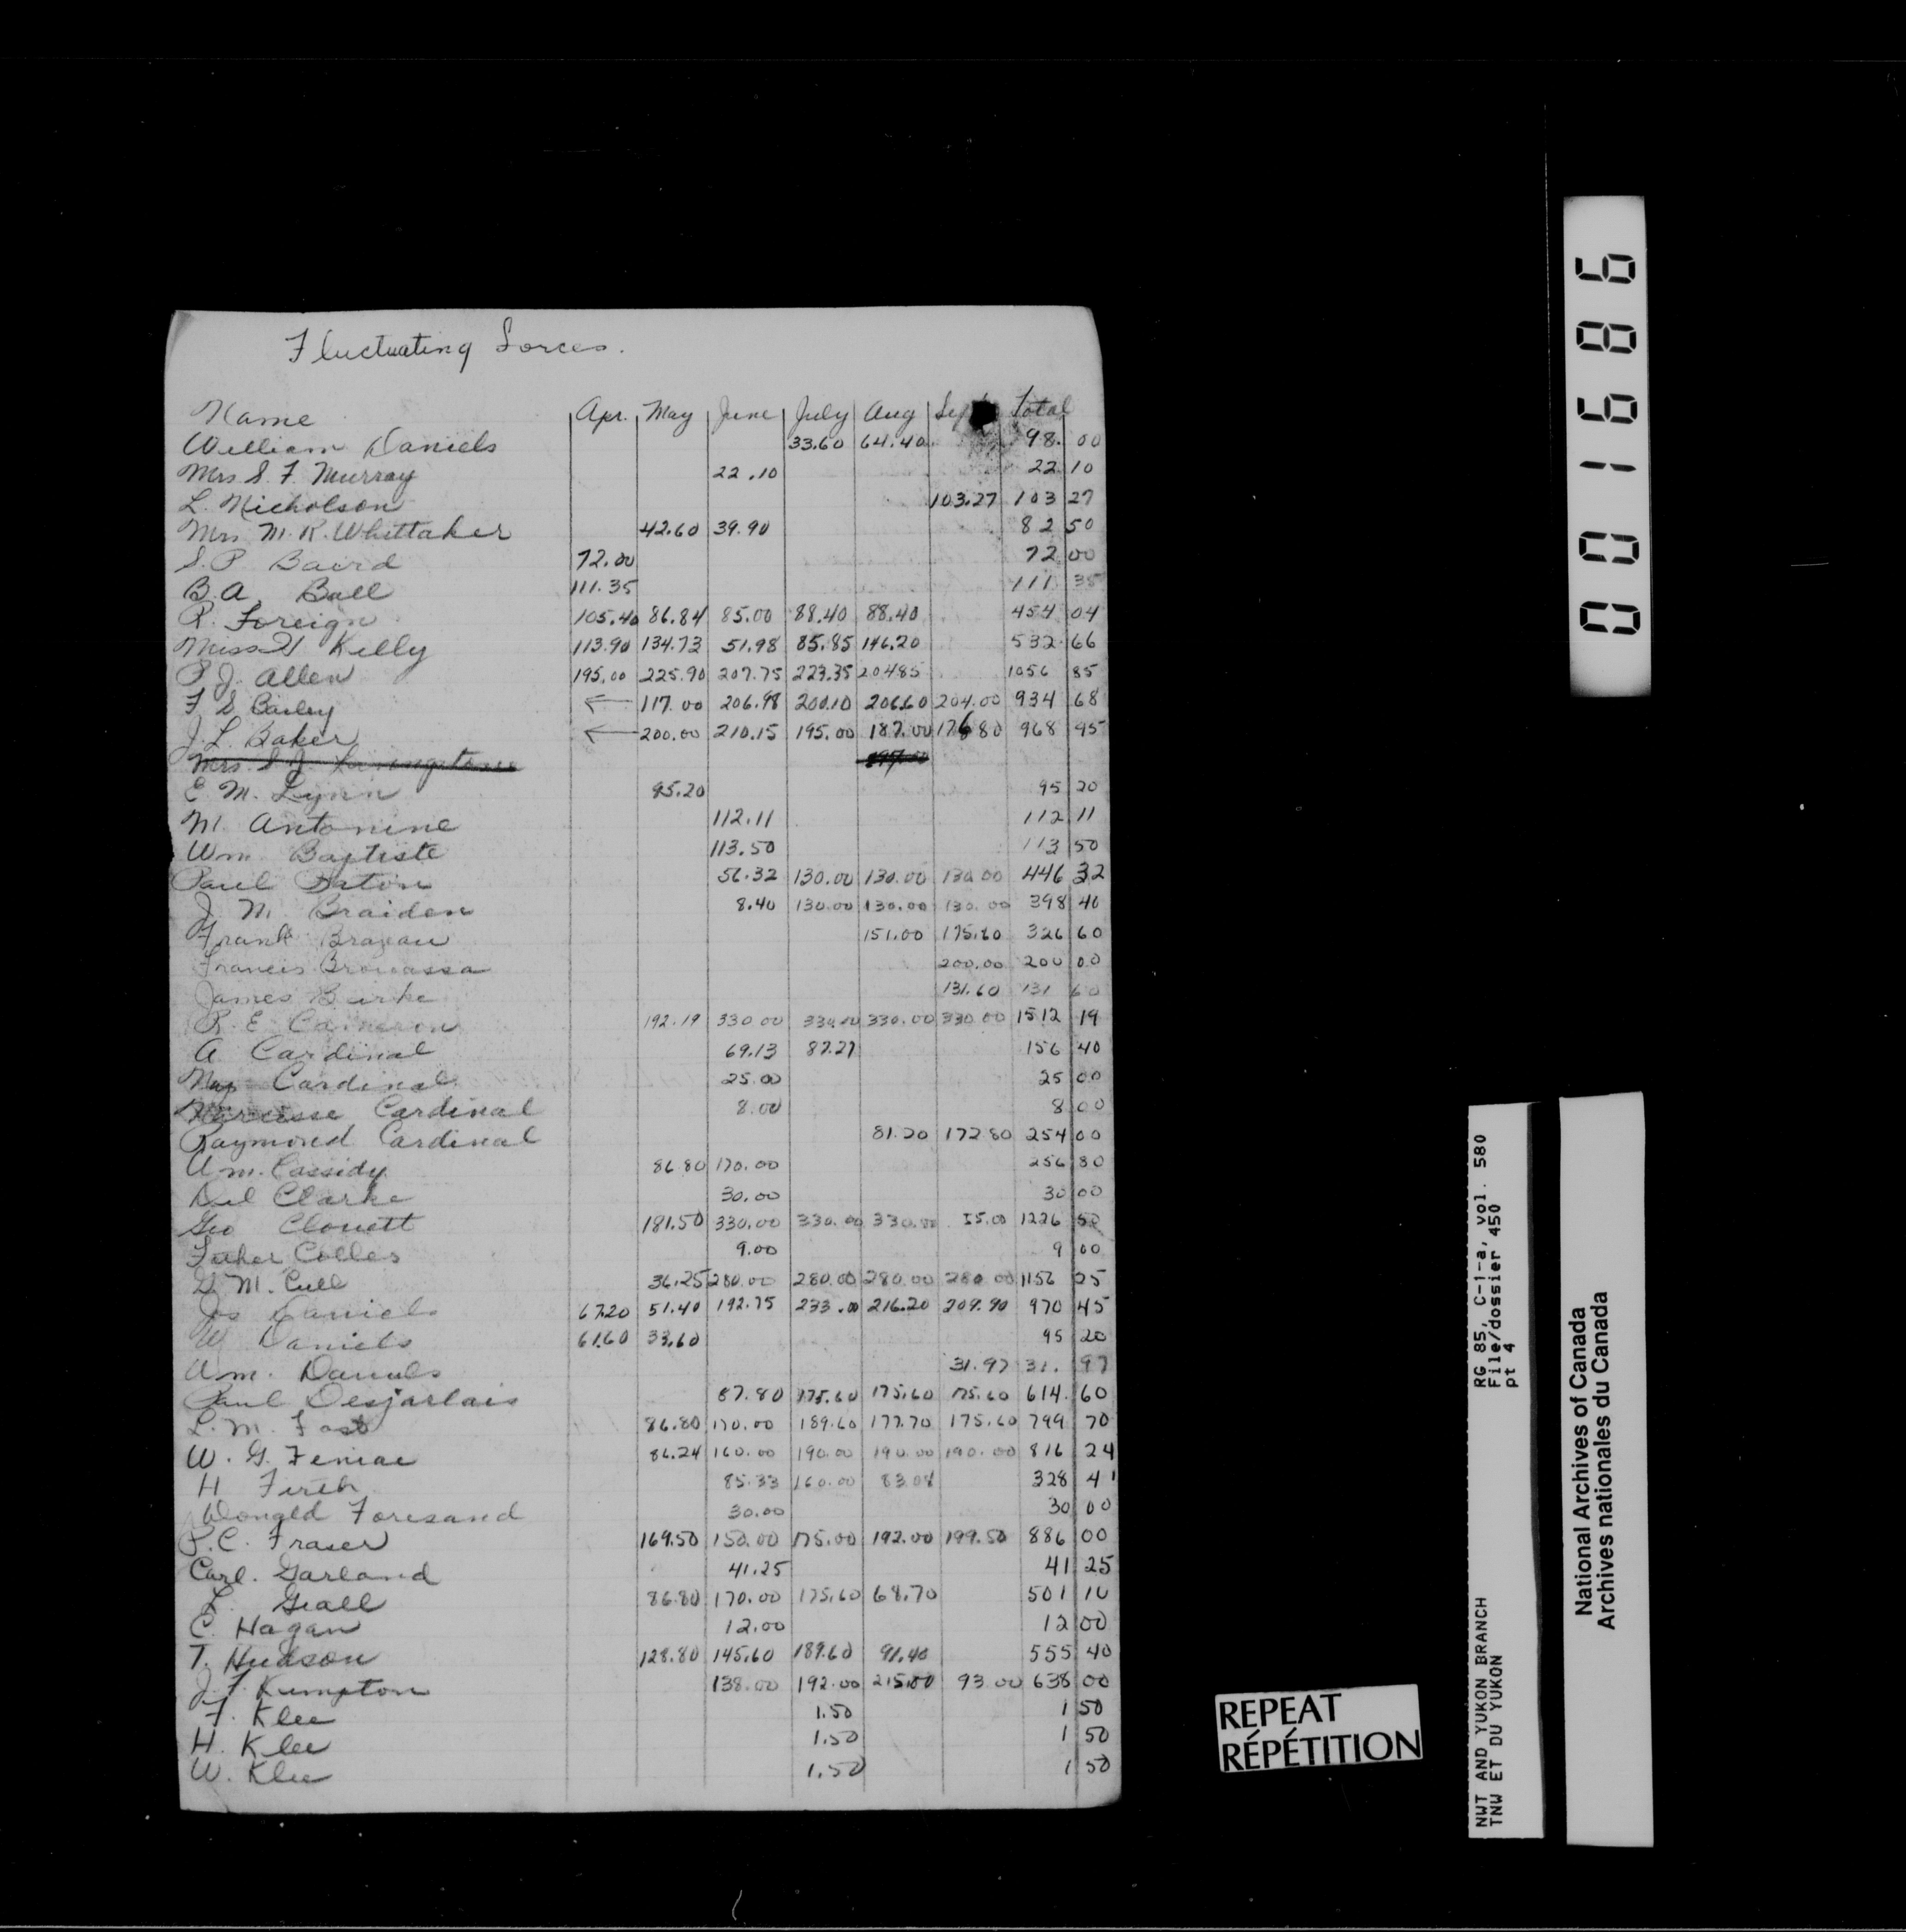 Fluctuating Forces.
Name Apr. May June July Aug Total
William Daniels 33.60 64.40 98. 00
Mrs S. F. Murray 22.10 22 10
L. Nicholson 103.27 103 27
Mrs M. R. Whittaker 42.60 39.90 82 50
S. P Baird 72.00 72 00
B. A. Ball 111.35 111 35
R. Foreign 105.40 86.84 85.00 88.40 88.40 454 04
Miss H Kelly 113.90 134.73 51.98 85.85 146.20 532 66
P J. Allen 195.00 225.90 207.75 223.35 204.85 1056 85
F S Bailey ← 117.00 206.98 200.10 206.60 204.00 934 68
J. L. Baker ← 200.00 210.15 195.00 187.00 176.80 968 95
Mrs S J.
E. M. Lynn 95.20 95 20
M. Antonine 112.11 112 11
Wm. Baptiste 113.50 113 50
Paul 56.32 130.00 130.00 130.00 446 32
J. M. Braiden 8.40 130.00 130.00 130.00 398 40
Frank Brazeau 151.00 175.60 326 60
Francis 200.00 200 00
James Burke 131.60 131 60
R. E. Cameron 192.19 330.00 330.00 330.00 330.00 1512 19
A Cardinal 69.13 87.27 156 40
Cardinal 25.00 25 00
Narcisse Cardinal 8.00 8 00
Raymond Cardinal 81.20 172.80 254 00
A. M. Cassidy 86.80 170.00 256 80
Del Clarke 30.00 30 00
Geo Clouett 181.50 330.00 330.00 330.00 55.00 1226 50
Father Colles 9.00 9 00
G. M. Cull 36.25 280.00 280.00 280.00 280.00 1156 25
Jos Daniels 67.20 51.40 192.75 233.00 216.20 209.90 970 45
W Daniels 61.60 33.60 95 20
Wm. Daniels 31.97 31. 97
Paul Desjarlais 87.80 175.60 175.60 175.60 614. 60
L. M. Fast 86.80 170.00 189.60 177.70 175.60 799 70
W. G. Feniac 86.24 160.00 190.00 190.00 190.00 816 24
H Firth 85.33 160.00 83.08 328 41
Donald Foresand 30.00 30 00
P. C. Fraser 169.50 150.00 175.00 192.00 199.50 886 00
Carl. Garland 41.25 41 25
L. Geall 86.80 170.00 175.60 68.70 501 10
C. Hagan 12.00 12 00
T. Hudson 128.80 145.60 189.60 91.40 555 40
J. F. Kumpton 138.00 192.00 215.00 93.00 638 00
F. Klee 1.50 1 50
H. Klee 1.50 1 50
W. Klee 1.50 1 50
001686
RG 85, C-1-a, vol. 580
File/dossier 450
pt 4
NWT AND YUKON BRANCH
TNW ET DU YUKON
National Archives of Canada
Archives nationales du Canada
REPEAT
RÉPÉTITION